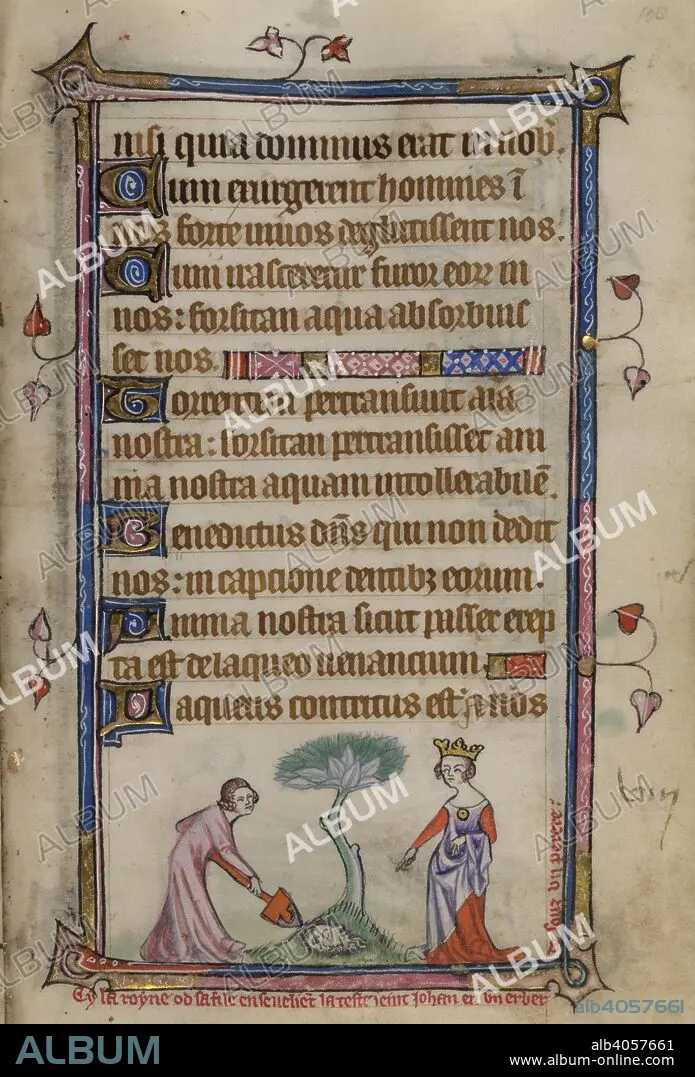 nisi quia dominus erat in nob.
Cum exurgerent homines ī
forte uiuos deglutissent nos.
Cum irasceretur furor eorꝝ in
nos: forsitan aqua absorbuis
set nos.
Torrentem pertransiuit aīa
nostra: forsitan pertransisset ani
ma nostra aquam intollerabilē.
Benedictus dn̄s qui non dedit
nos: in captione dentibꝫ eorum.
Anima nostra sicut passer erep
ta est de laqueo uenancium.
Laqueus contritus est: ⁊ nos
Cy la royne od sa file enseuelist la teste seint Johan en vn erber
souz vn perere:
alb4057661
ALBUM
alb4057661
www.album-online.com